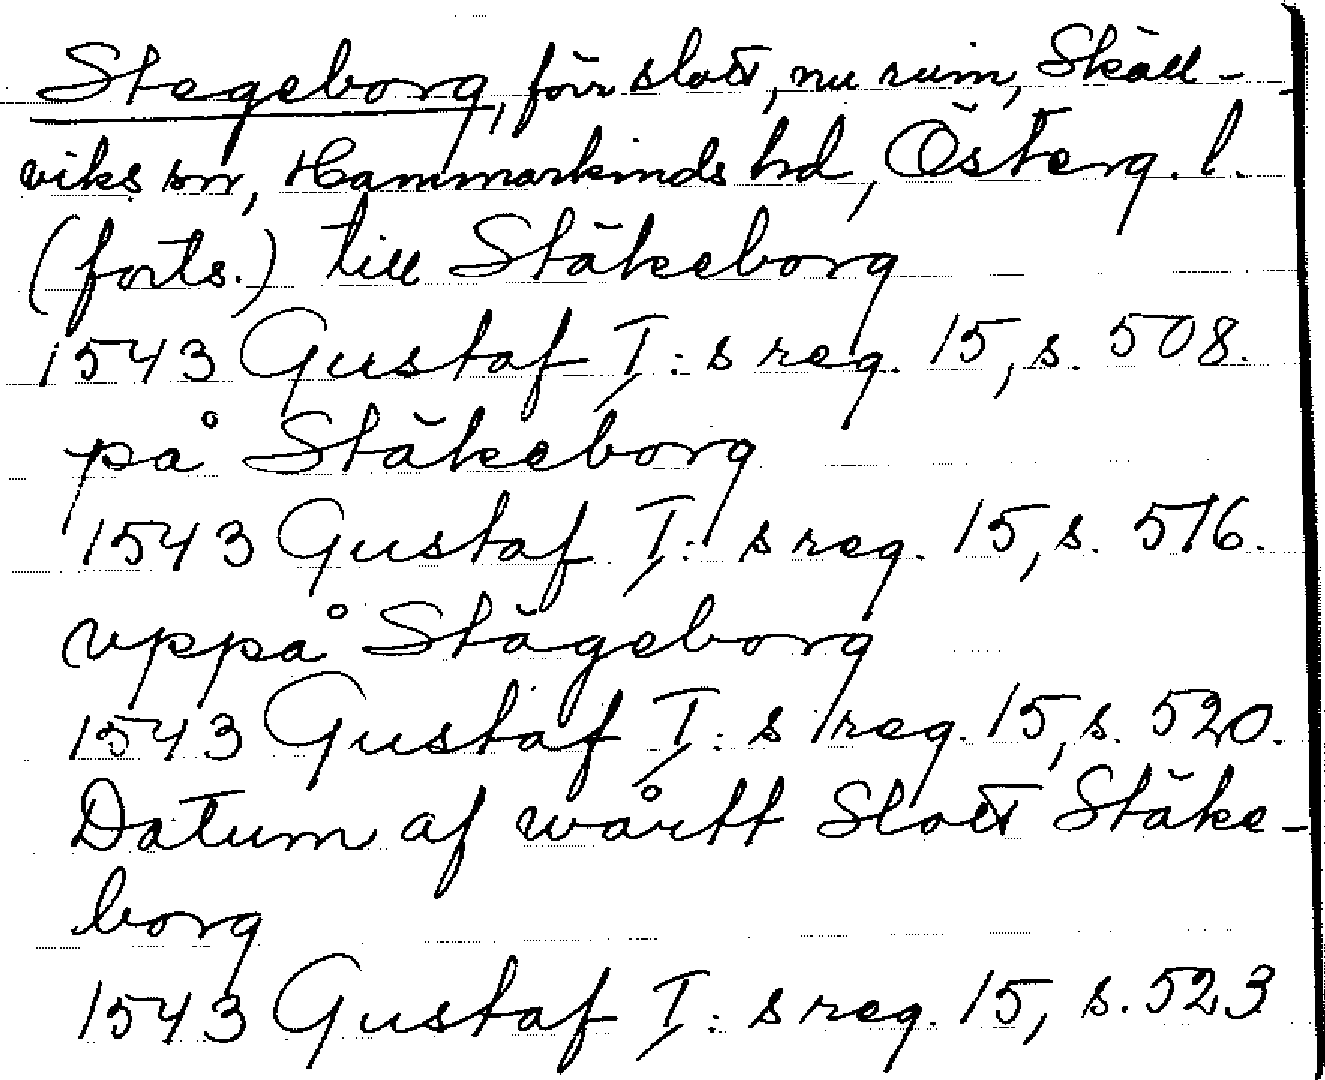 Stegeborg, förr slott, nu ruin, Skäll-
viks sn, Hammarkinds hd, Österg. l.
(forts.) till Stäkeborg
1543 Gustaf I:s reg. 15, s. 508.
på Stäkeborg
1543 Gustaf I:s reg. 15, s. 516.
vppå Stägeborg
1543 Gustaf I:s reg. 15, s. 520.
Datum af wårtt Slott Stäke-
borg
1543 Gustaf I:s reg. 15, s. 523